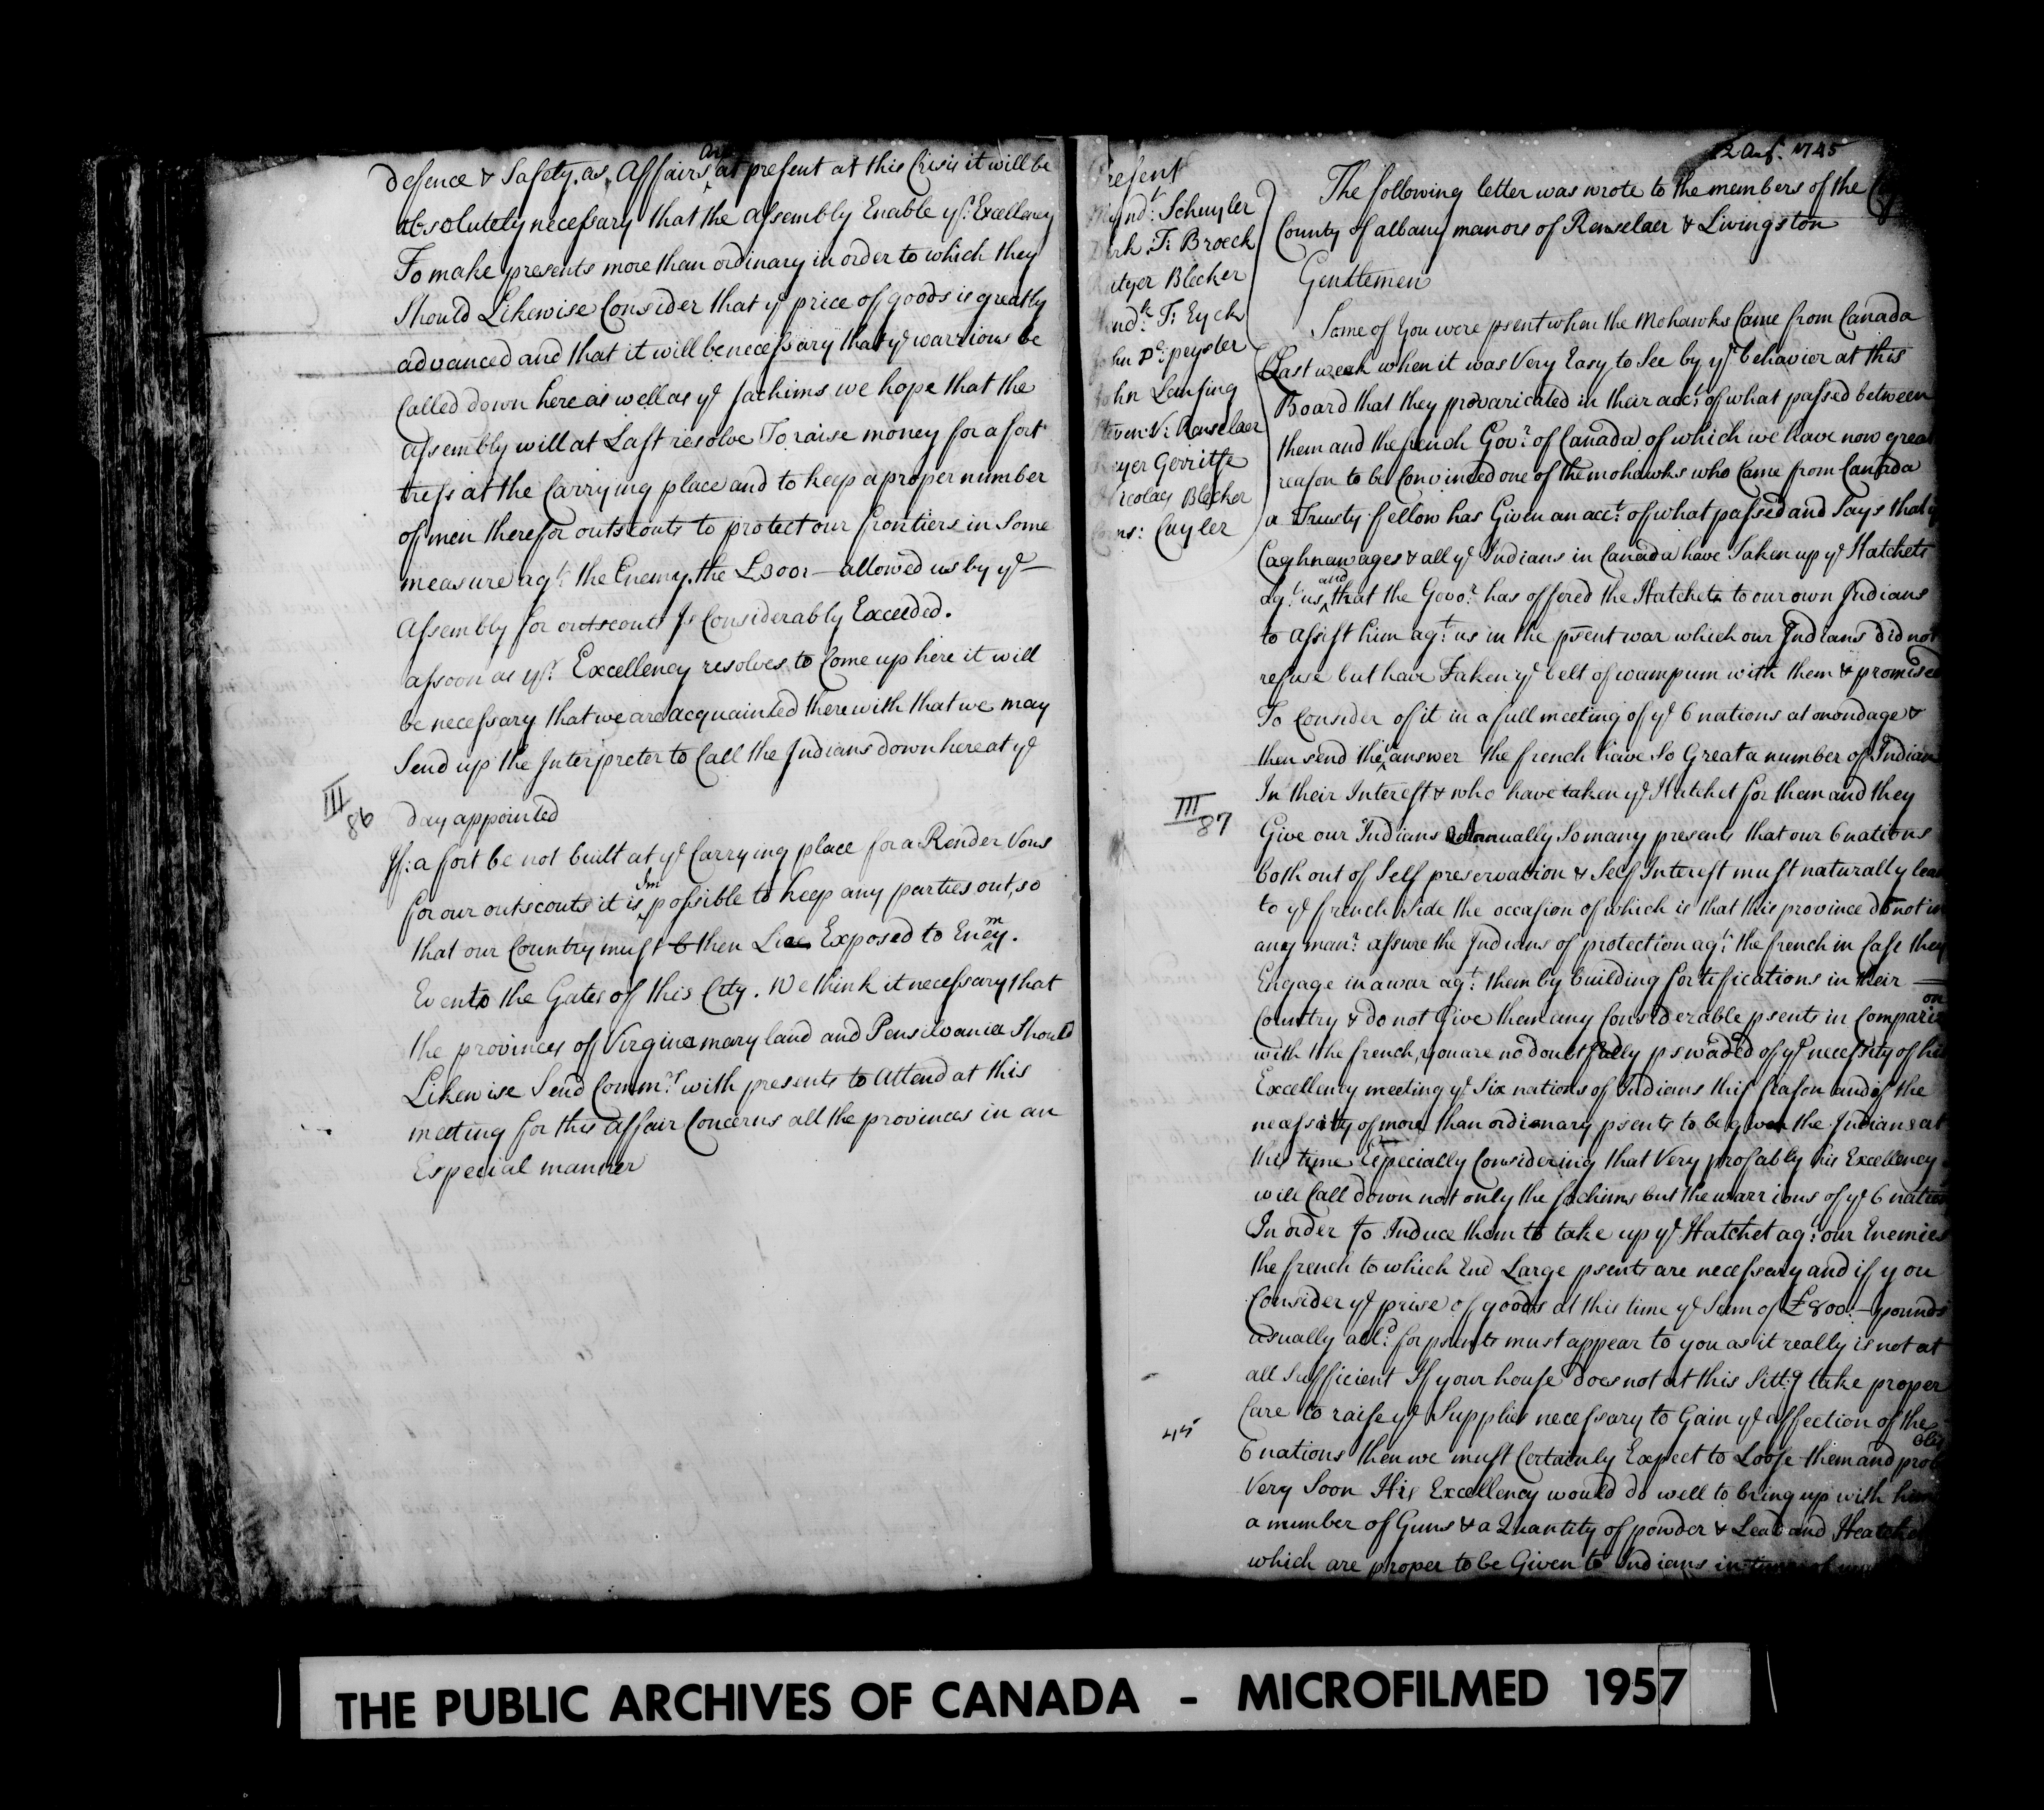 are
defence & Safety, as Affairs at present at this Crisis it will be
absolutely necessary that the assembly Enable yr. Excellency
To make presents more than ordinary in order to which they
Should Likewise Consider that ye price of goods is greatly
advanced and that it will be necessary that ye warriours be
Called down here as well as ye Sachims we hope that the
assembly will at Last resolve To raise money for a fort
tress at the Carrying place and to keep a proper number
of men there for outscouts to protect our frontiers in Some
measure agt. the Enemy. the £300:— allowed us by ye —
Assembly for outscouts Is Considerably Exceeded.
assoon as yr. Excellency resolves to Come up here it will
be necessary that we are acquainted therewith that we may
Send up the Interpreter to Call the Indians down here at ye
day appointed
III
86
If: a fort be not built at ye Carrying place for a Render Vous
for our outscouts it is Impossible to keep any parties out, so
that our Country must then Exposed to Enemy.
Even to the Gates of this City. We think it necessary that
the provinces of Virginea mary land and Pensilvania Should
Likewise Send Commrs. with presents to attend at this
meeting for this affair Concerns all the provinces in an
Especial manner
12 Aug. 1745
Present
Schuyler
Dirk T: Broeck
Rutger Blecker
T: Eyck
John De: peyster
John Lansing
Steven V: Renselaer
Reyer Gerritse
Nicolaes Blecker
Corns: Cuyler
The following letter was wrote to the members of the
County of albany manors of Renselaer & Livingston
Gentlemen
Some of you were psent when the Mohawks Came from Canada
Last week when it was Very Easy to See by yr. behavior at this
Board that they prevaricated in their acct. of what passed between
them and the french Govr. of Canada of which we have now great
reason to be Convinced one of the mohawks who Came from Canada
a Trusty fellow has Given an acct. of what passed and Says that
Caghnawages & all ye Indians in Canada have Taken up ye Hatchets
agt. us, and that the Govor. has offered the Hatchets to our own Indians
to assist him agt. us in the psent war which our Indians did not
refuse but have Taken ye belt of wampum with them & promised
To Consider of it in a full meeting of ye 6 nations at onondage &
then send their answer the french have So Great a number of Indians
In their Interest & who have taken ye Hatchet for them and they
III
87
Give our Indians Annually So many presents that our 6 nations
both out of Self preservation & Self Interest must naturally lean
to ye french Side the occasion of which is that this province do not in
any manr. assure the Indians of protection agt. the french in Case they
Engage in a war agt. them by building fortifications in their —
Country & do not Give them any Considerable psents in Comparison
with the french, you are no doubt fully pswaded of ye necessity of his
Excellency meeting ye Six nations of Indians this season and of the
necessity of more than ordinary psents to be given the Indians at
this time Especially Considering that Very probably his Excellency
will Call down not only the sachims but the warriours of ye 6 nations
In order to Induce them to take up ye Hatchet agt. our Enemies
the french to which End Large psents are necessary and if you
Consider ye prise of goods at this time ye Sum of £800:— pounds
usually alld. for psents must appear to you as it really is not at
all Sufficient If your house does not at this Sittg take proper
Care to raise ye Supplies necessary to Gain ye affection of the
45
6 nations then we must Certainly Expect to Loose them and probably
Very Soon His Excellency would do well to bring up with him
a number of Guns & a Quantity of powder & Lead and Heatchets
which are proper to be Given to Indians in
THE PUBLIC ARCHIVES OF CANADA - MICROFILMED 1957